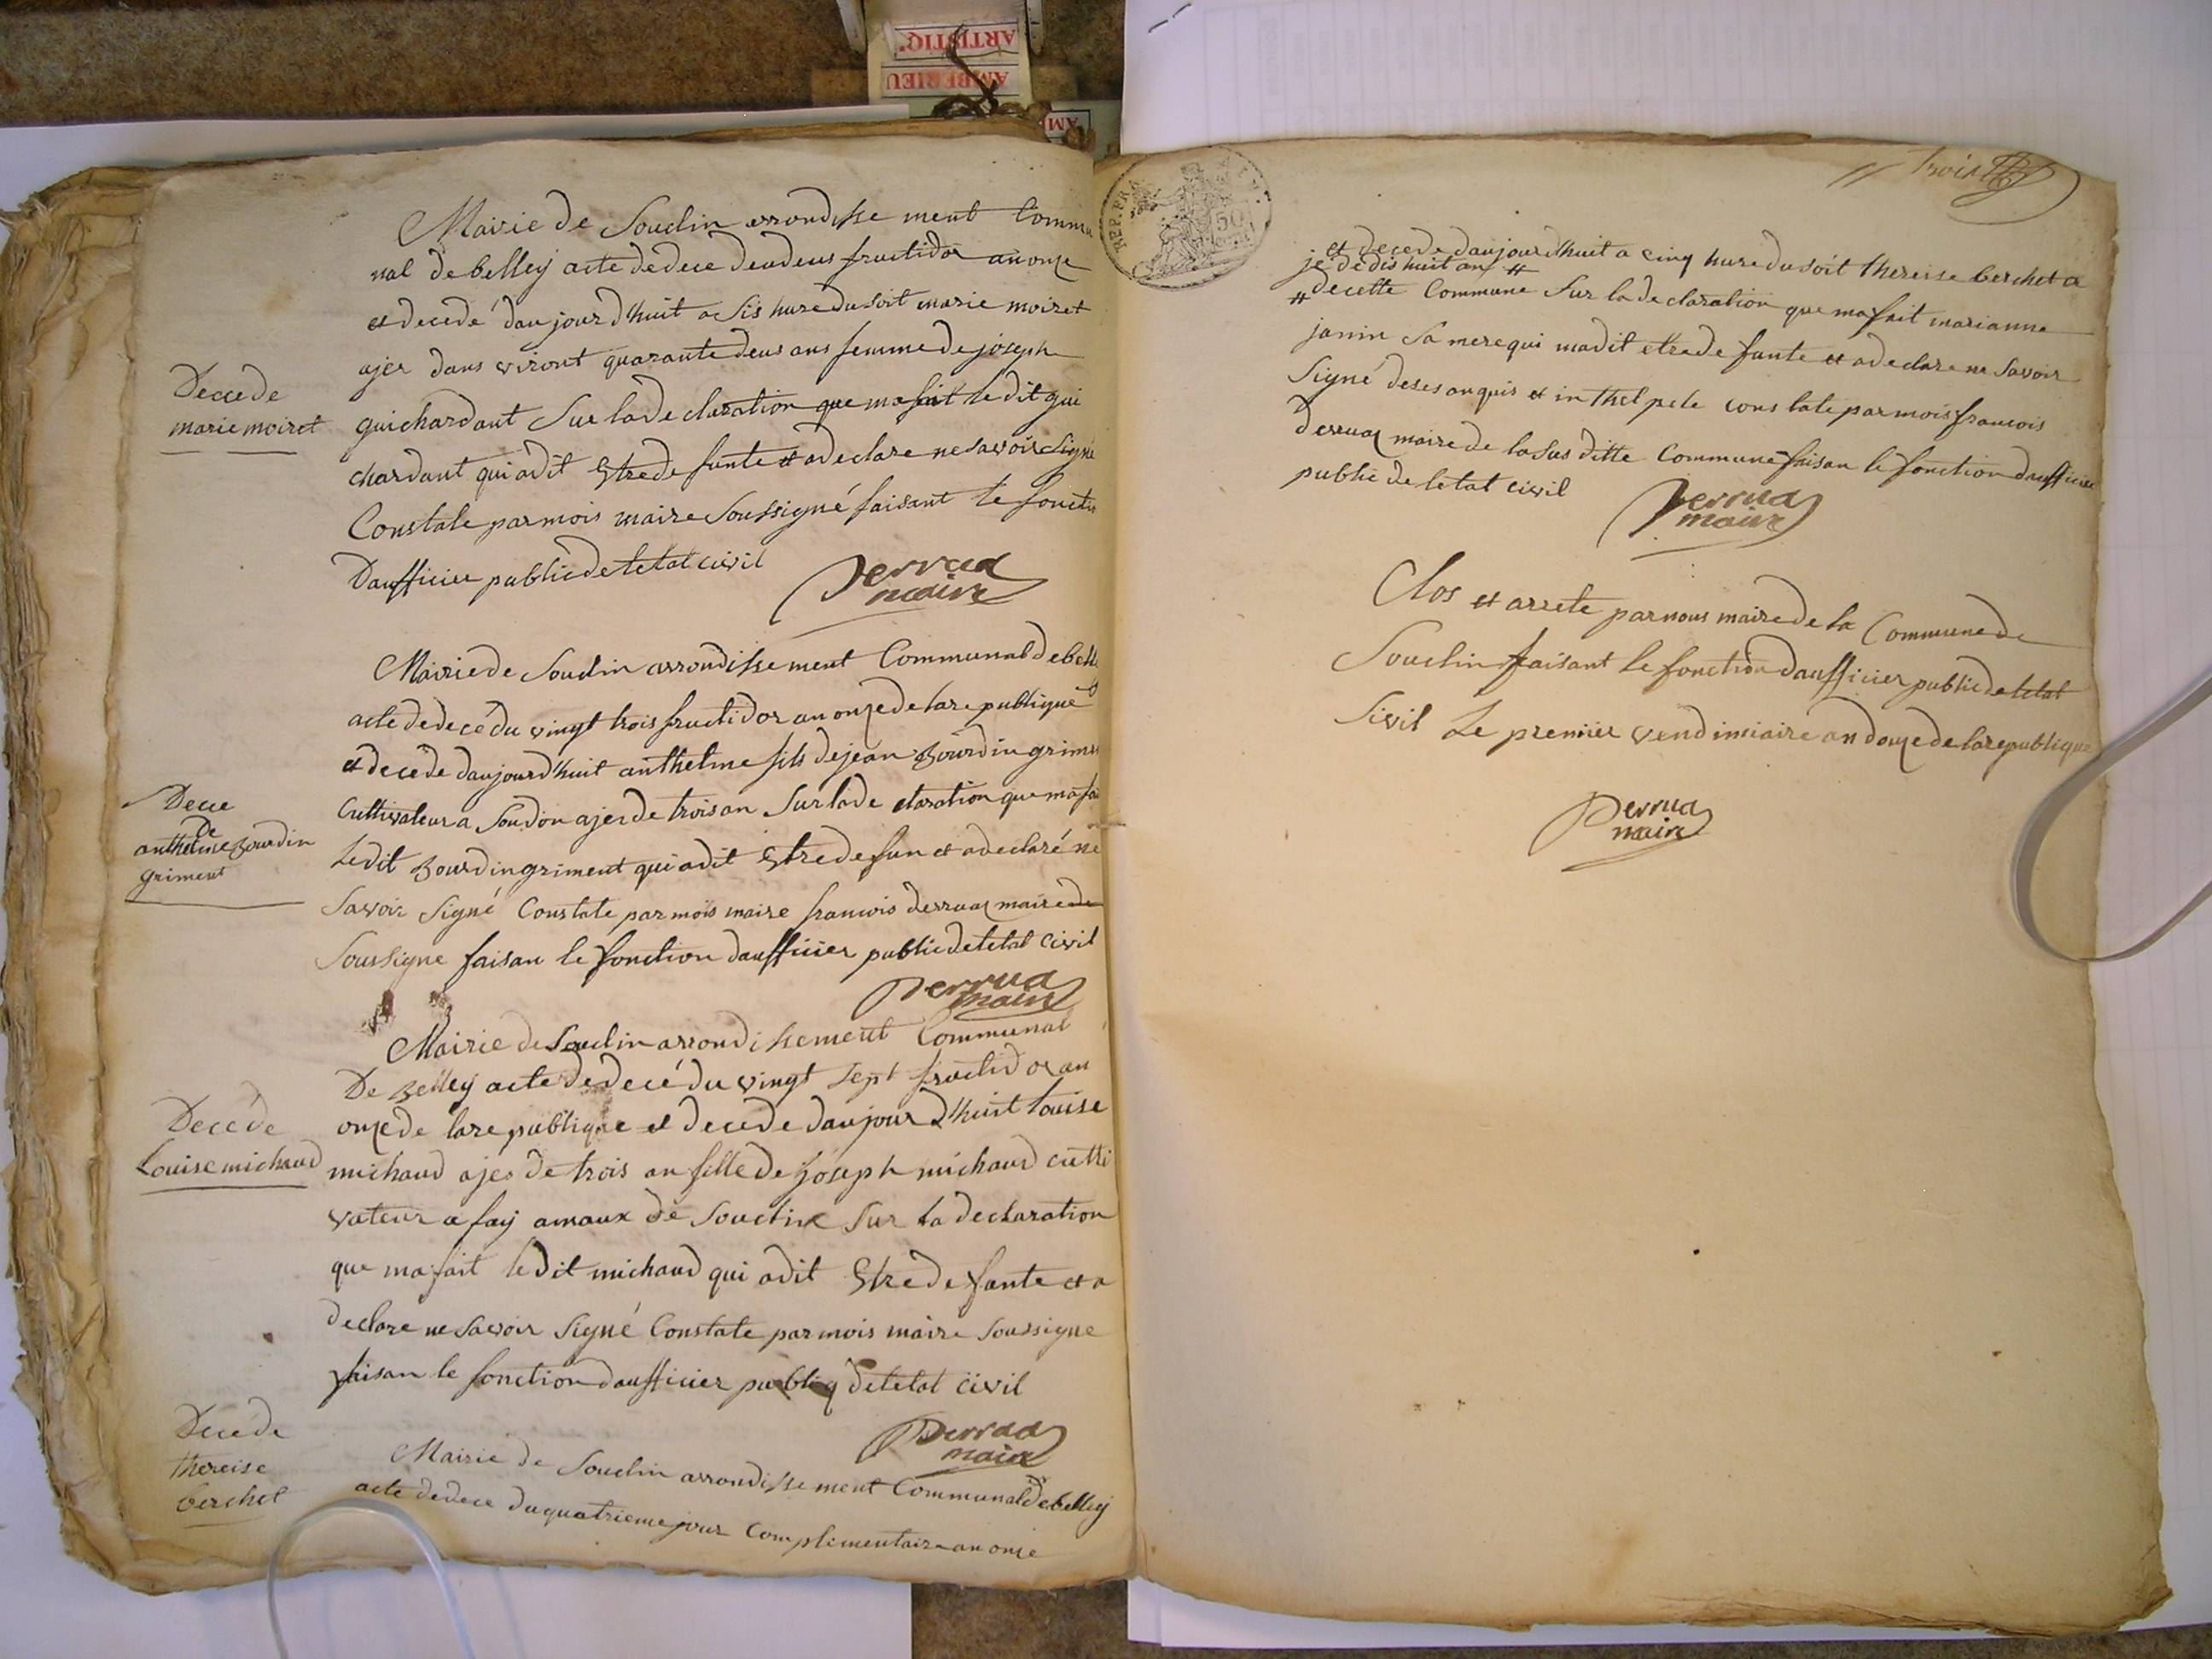 ARTISTIQ'
AMBERIEU
AM
Mairie de Souclin arrondisse ment Commu
nal de belley acte de dece deudeus fructidor an onze
et decedé daujourdhuit a sis hure du soit marie moiret
ajer dans viront quarante deus ans femme de joseph
Decede
marie moiret
guichardant Sur la declaration que ma fait le dit gui
chardant qui a dit Etre de funte et a declare ne savoir Signé
Constate par mois maire Soussigné faisant le foncti
Daufficier public de letat civil
Derruaz
maire
Mairie de Souclin arrondisse ment Communal de bell
acte de decé du vingt trois fructidor an onze de lare publique
et decede daujourdhuit anthelme fils de jean Bourdin grim
Cultivateur a Soudon ajer de trois an Sur la de claration que ma fai
Dece
de
anthelme Bourdin
griment
Le dit Bourdin griment qui a dit Etre de fun et a declaré ne
Savoir Signé Constate par mois maire francois Derruaz maire de
Soussigne faisan le fonction daufficier public de letat civil
Derruaz
maire
Mairie de Souclin arrondissement Communal
De Belley acte de decé du vingt sept fructidor an
onze de lare publique et decede daujourdhuit louise
Decéde
Louise michaud
michaud ajer de trois an fille de joseph michaud culti
vateur a fay amaux de Souclin Sur la declaration
que ma fait le dit michaud qui a dit Etre de funte et a
declare ne Savoir Signé Constate par mois maire Soussigne
faisan le fonction daufficier publiq de letat civil
Derruaz
maire
Decéde
thereise
berchet
Mairie de Souclin arrondisse ment Communal de belley
acte de dece du quatrieme jour Complementaire an onze
REP. FRA
50
trois
et decede daujourdhuit a cinq hure du soit thereise berchet a
je de dis huit ans #
# de cette Commune Sur la declaration que ma fait marianne
janin Sa mere qui ma dit etre de funte et a declare ne Savoir
Signé de ses anquis et in thel pele cons tate par mois francois
Derruaz maire de la Sus ditte Commune faisan le fonction daufficier
public de letat civil
Derruaz
maire
Clos et arrete par nous maire de la Commune de
Souclin faisant le fonction daufficier public de letat
Sivil Le premier vendimiaire an douze de la republique
Derruaz
maire